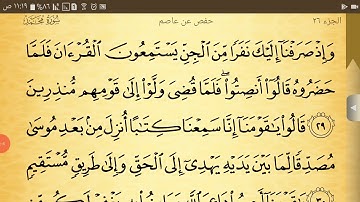 الجزء ٢٦ حفص عن عاصم سورة محمد ١١:١٩ ص
وَإِذْ صَرَفْنَآ إِلَيْكَ نَفَرًا مِّنَ ٱلْجِنِّ يَسْتَمِعُونَ ٱلْقُرْءَانَ فَلَمَّا
حَضَرُوهُ قَالُوٓا۟ أَنصِتُوا۟ ۖ فَلَمَّا قُضِىَ وَلَّوْا۟ إِلَىٰ قَوْمِهِم مُّنذِرِينَ
٢٩ قَالُوا۟ يَٰقَوْمَنَآ إِنَّا سَمِعْنَا كِتَٰبًا أُنزِلَ مِنۢ بَعْدِ مُوسَىٰ
مُصَدِّقًا لِّمَا بَيْنَ يَدَيْهِ يَهْدِىٓ إِلَى ٱلْحَقِّ وَإِلَىٰ طَرِيقٍ مُّسْتَقِيمٍ
٣٠